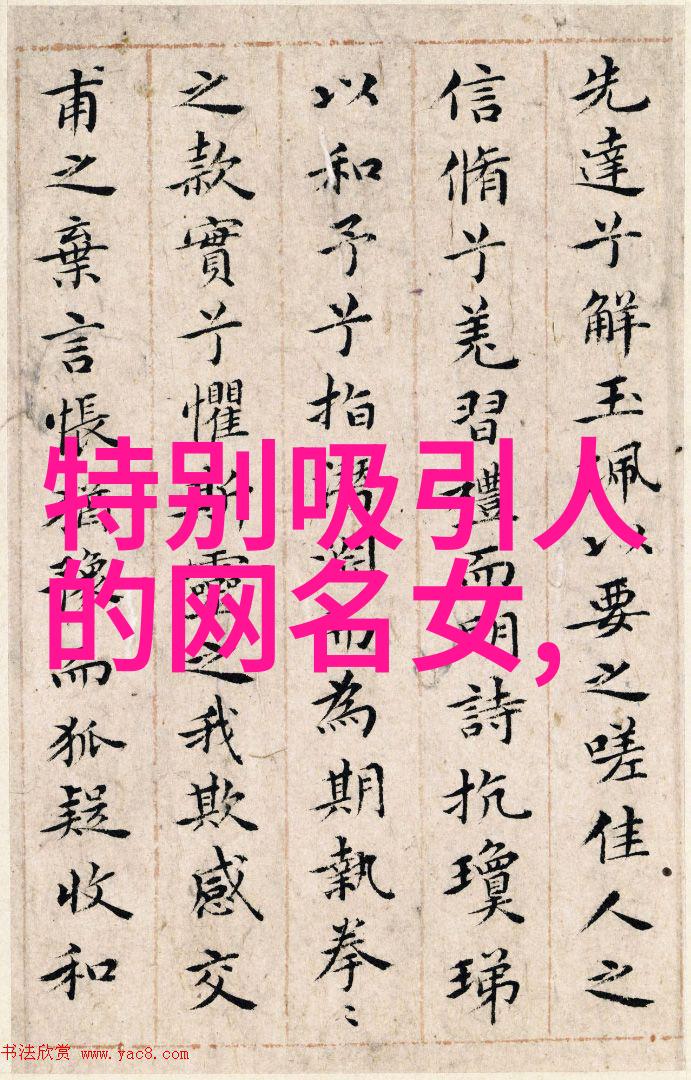 先達兮解玉佩以要之嗟佳人之
信脩兮羌習禮而明詩抗瓊珶
以和予兮指潛淵而為期執拳〻
之款實兮懼斯靈之我欺感交
甫之棄言悵猶豫而狐疑收和
特别吸引人
的网名女,
书法欣赏 www.yac8.com